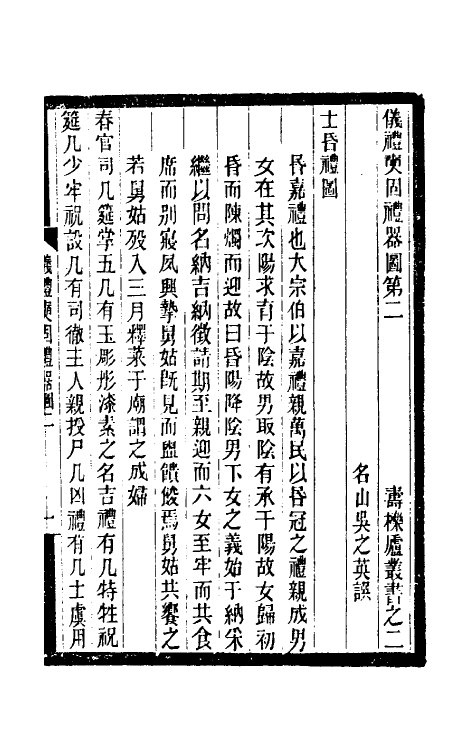 儀禮奭固禮器圖第二 壽櫟廬叢書之二
名山吳之英譔
士昏禮圖
昏嘉禮也大宗伯以嘉禮親萬民以昏冠之禮親成男
女在其次陽求育于陰故男取陰有承于陽故女歸初
昏而陳燭而迎故曰昏陽降陰男下女之義始于納采
繼以問名納吉納徵請期至親迎而六女至牢而共食
席而別寢夙興摯舅姑旣見而盥饋餕焉舅姑共饗之
若舅姑歿入三月釋菜于廟謂之成婦
春官司几筵掌五几有玉彫彤漆素之名吉禮有几特牲祝
筵几少牢祝設几有司徹主人親授尸几凶禮有几士虞用
儀禮奭固禮器圖二 一